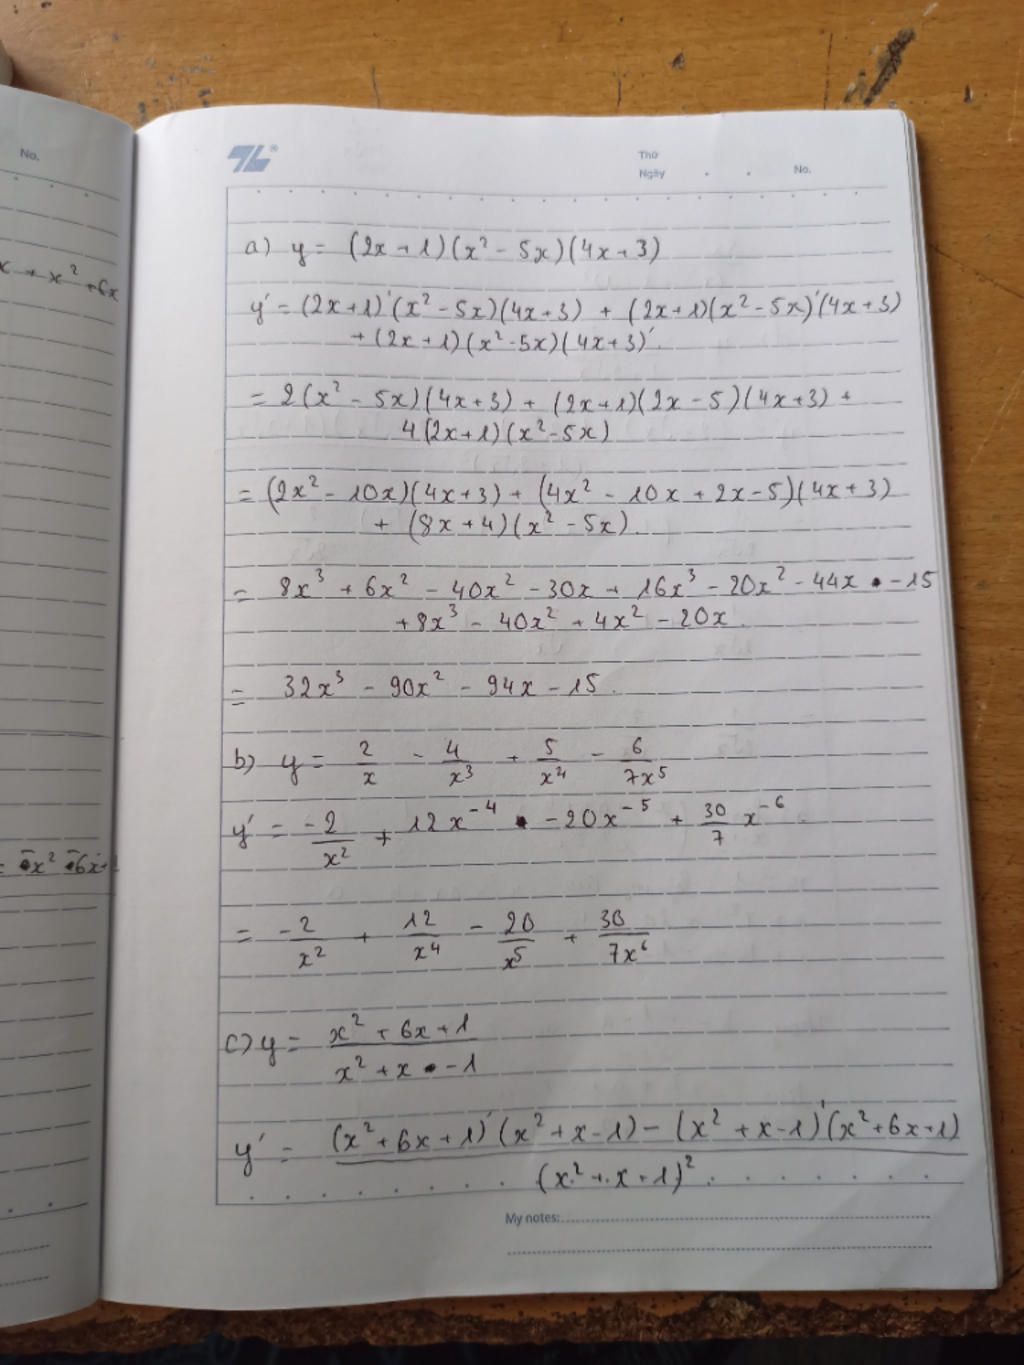 No.
x + x² + 6x
= -x² -6x+1
TL®
Thứ
Ngày
No.
a) y = (2x + 1)(x² - 5x)(4x + 3)
y' = (2x+1)'(x² - 5x)(4x + 3) + (2x+1)(x² - 5x)'(4x + 3)
+ (2x + 1)(x² - 5x)(4x + 3)'.
= 2(x² - 5x)(4x+3) + (2x+1)(2x - 5)(4x+3) +
4(2x+1)(x² - 5x)
= (2x² - 10x)(4x+3) + (4x² - 10x + 2x - 5)(4x + 3)
+ (8x + 4)(x² - 5x).
= 8x³ + 6x² - 40x² - 30x + 16x³ - 20x² - 44x - 15
+ 8x³ - 40x² + 4x² - 20x.
= 32x³ - 90x² - 94x - 15.
b) y = 2/x - 4/x³ + 5/x⁴ - 6/7x⁵
y' = -2/x² + 12x⁻⁴ - 20x⁻⁵ + 30/7 x⁻⁶.
= -2/x² + 12/x⁴ - 20/x⁵ + 30/7x⁶
c) y = x² + 6x + 1 / x² + x - 1
y' = (x² + 6x + 1)'(x² + x - 1) - (x² + x - 1)'(x² + 6x + 1) / (x² + x + 1)².
My notes: